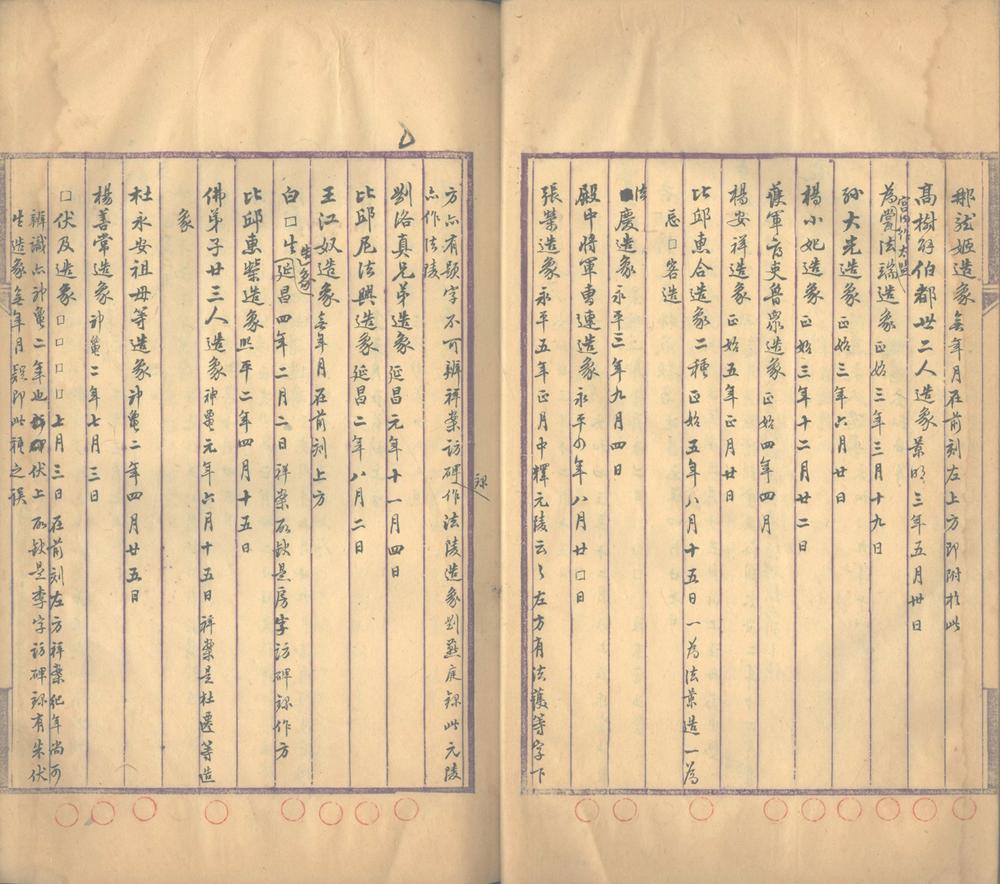 那龍姬造象 無年月在前刻左上方即附於此
高樹解伯都卅二人造象 景明三年五月卅日
宮內作大監
為瓽法端造象 正始三年三月十九日
孫大光造象 正始三年六月廿日
楊小妃造象 正始三年十二月廿二日
護軍府吏魯眾造象 正始四年四月
楊安祥造象 正始五年正月廿日
比邱惠合造象二種 正始五年八月十五日 一為法景造 一為
忌□客造
法慶造象 永平三年九月四日
殿中將軍曹連造象 永平四年八月廿□日
張榮造象 永平五年正月中釋元陵云々左方有法護等字下
方亦有題字不可辨祥案訪碑錄作法陵造象劉燕庭錄此元陵
亦作法陵
劉洛真兄弟造象 延昌元年十一月四日
比邱尼法興造象 延昌二年八月二日
王江奴造象 無年月在前刻上方
白□生造象 延昌四年二月二日祥案所缺是房字訪碑錄作方
比邱惠榮造象 熙平二年四月十五日
佛弟子廿三人造象 神龜元年六月十五日祥案是杜遷等造
象
杜永安祖母等造象 神龜二年四月廿五日
楊善常造象 神龜二年七月三日
□伏及造象 □□□□七月三日 在前刻左方祥案紀年尚可
辨識亦神龜二年也 伏上所缺是李字訪碑錄有朱伏
生造象無年月疑即此種之誤